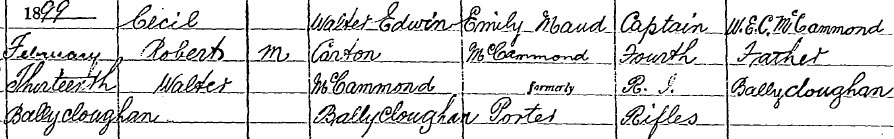 1899 Cecil Walter Edwin Emily Maud Captain W.E.C. McCammond
February Robert M Carton McCammond Fourth Father
Thirteenth Walter McCammond formerly R. I. Ballycloughan
Ballycloughan Ballycloughan Porter Rifles